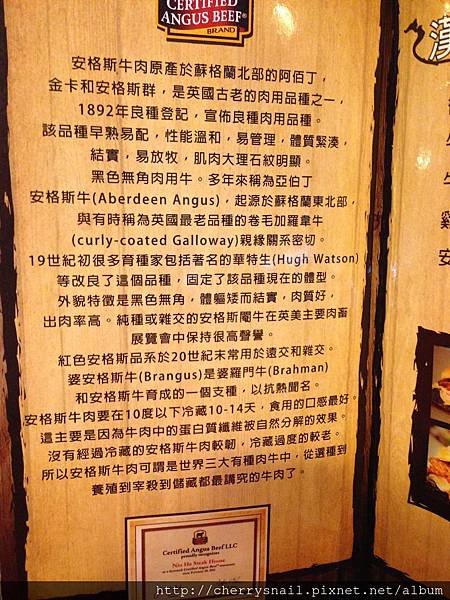 CERTIFIED
ANGUS BEEF
BRAND
安格斯牛肉原產於蘇格蘭北部的阿佰丁，
金卡和安格斯群，是英國古老的肉用品種之一，
1892年良種登記，宣佈良種肉用品種。
該品種早熟易配，性能溫和，易管理，體質緊湊，
結實，易放牧，肌肉大理石紋明顯。
黑色無角肉用牛。多年來稱為亞伯丁
安格斯牛(Aberdeen Angus)，起源於蘇格蘭東北部，
與有時稱為英國最老品種的卷毛加羅韋牛
(curly-coated Galloway)親緣關系密切。
19世紀初很多育種家包括著名的華特生(Hugh Watson)
等改良了這個品種，固定了該品種現在的體型。
外貌特徵是黑色無角，體軀矮而結實，肉質好，
出肉率高。純種或雜交的安格斯閹牛在英美主要肉畜
展覽會中保持很高聲譽。
紅色安格斯品系於20世紀末常用於遠交和雜交。
婆安格斯牛(Brangus)是婆羅門牛(Brahman)
和安格斯牛育成的一個支種，以抗熱聞名。
安格斯牛肉要在10度以下冷藏10-14天，食用的口感最好。
這主要是因為牛肉中的蛋白質纖維被自然分解的效果。
沒有經過冷藏的安格斯牛肉較韌，冷藏過度的較老。
所以安格斯牛肉可謂是世界三大有種肉牛中，從選種到
養殖到宰殺到儲藏都最講究的牛肉了。
Certified Angus Beef LLC
proudly recognizes
Niu Ho Steak House
漢
雞
安
http://cherrysnail.pixnet.net/album